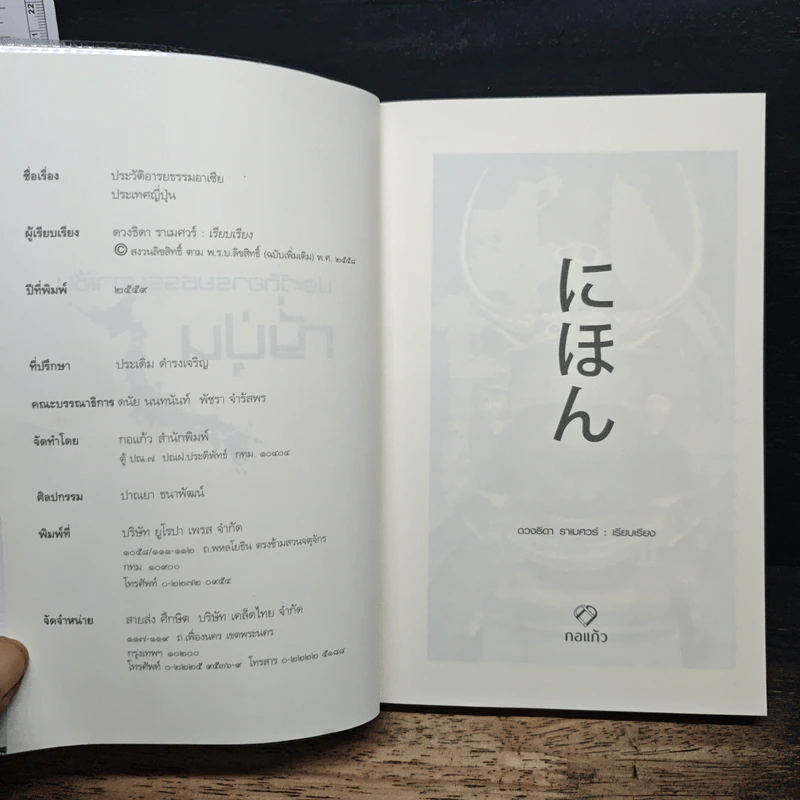 ชื่อเรื่อง ประวัติอารยธรรมอาเซีย
ประเทศญี่ปุ่น
ผู้เรียบเรียง ดวงธิดา ราเมศวร์ : เรียบเรียง
© สงวนลิขสิทธิ์ ตาม พ.ร.บ.ลิขสิทธิ์ (ฉบับเพิ่มเติม) พ.ศ. ๒๕๕๘
ปีที่พิมพ์ ๒๕๕๙
ที่ปรึกษา ประเดิม ดำรงเจริญ
คณะบรรณาธิการ ดนัย นนทนันท์ พัชรา จำรัสพร
จัดทำโดย กอแก้ว สำนักพิมพ์
ตู้ ปณ.๗ ปณฝ.ประดิพัทธ์ กทม. ๑๐๔๐๔
ศิลปกรรม ปาณยา ธนาพัฒน์
พิมพ์ที่ บริษัท ยูโรปา เพรส จำกัด
๑๐๕๘/๑๑๑-๑๑๒ ถ.พหลโยธิน ตรงข้ามสวนจตุจักร
กทม. ๑๐๙๐๐
โทรศัพท์ ๐-๒๒๗๒ ๐๙๕๔
จัดจำหน่าย สายส่ง ศึกษิต บริษัท เคล็ดไทย จำกัด
๑๑๗-๑๑๙ ถ.เฟื่องนคร เขตพระนคร
กรุงเทพฯ ๑๐๒๐๐
โทรศัพท์ ๐-๒๒๒๕ ๙๕๓๖-๙ โทรสาร ๐-๒๒๒๒ ๕๑๘๘
にほん
ดวงธิดา ราเมศวร์ : เรียบเรียง
กอแก้ว
21 22